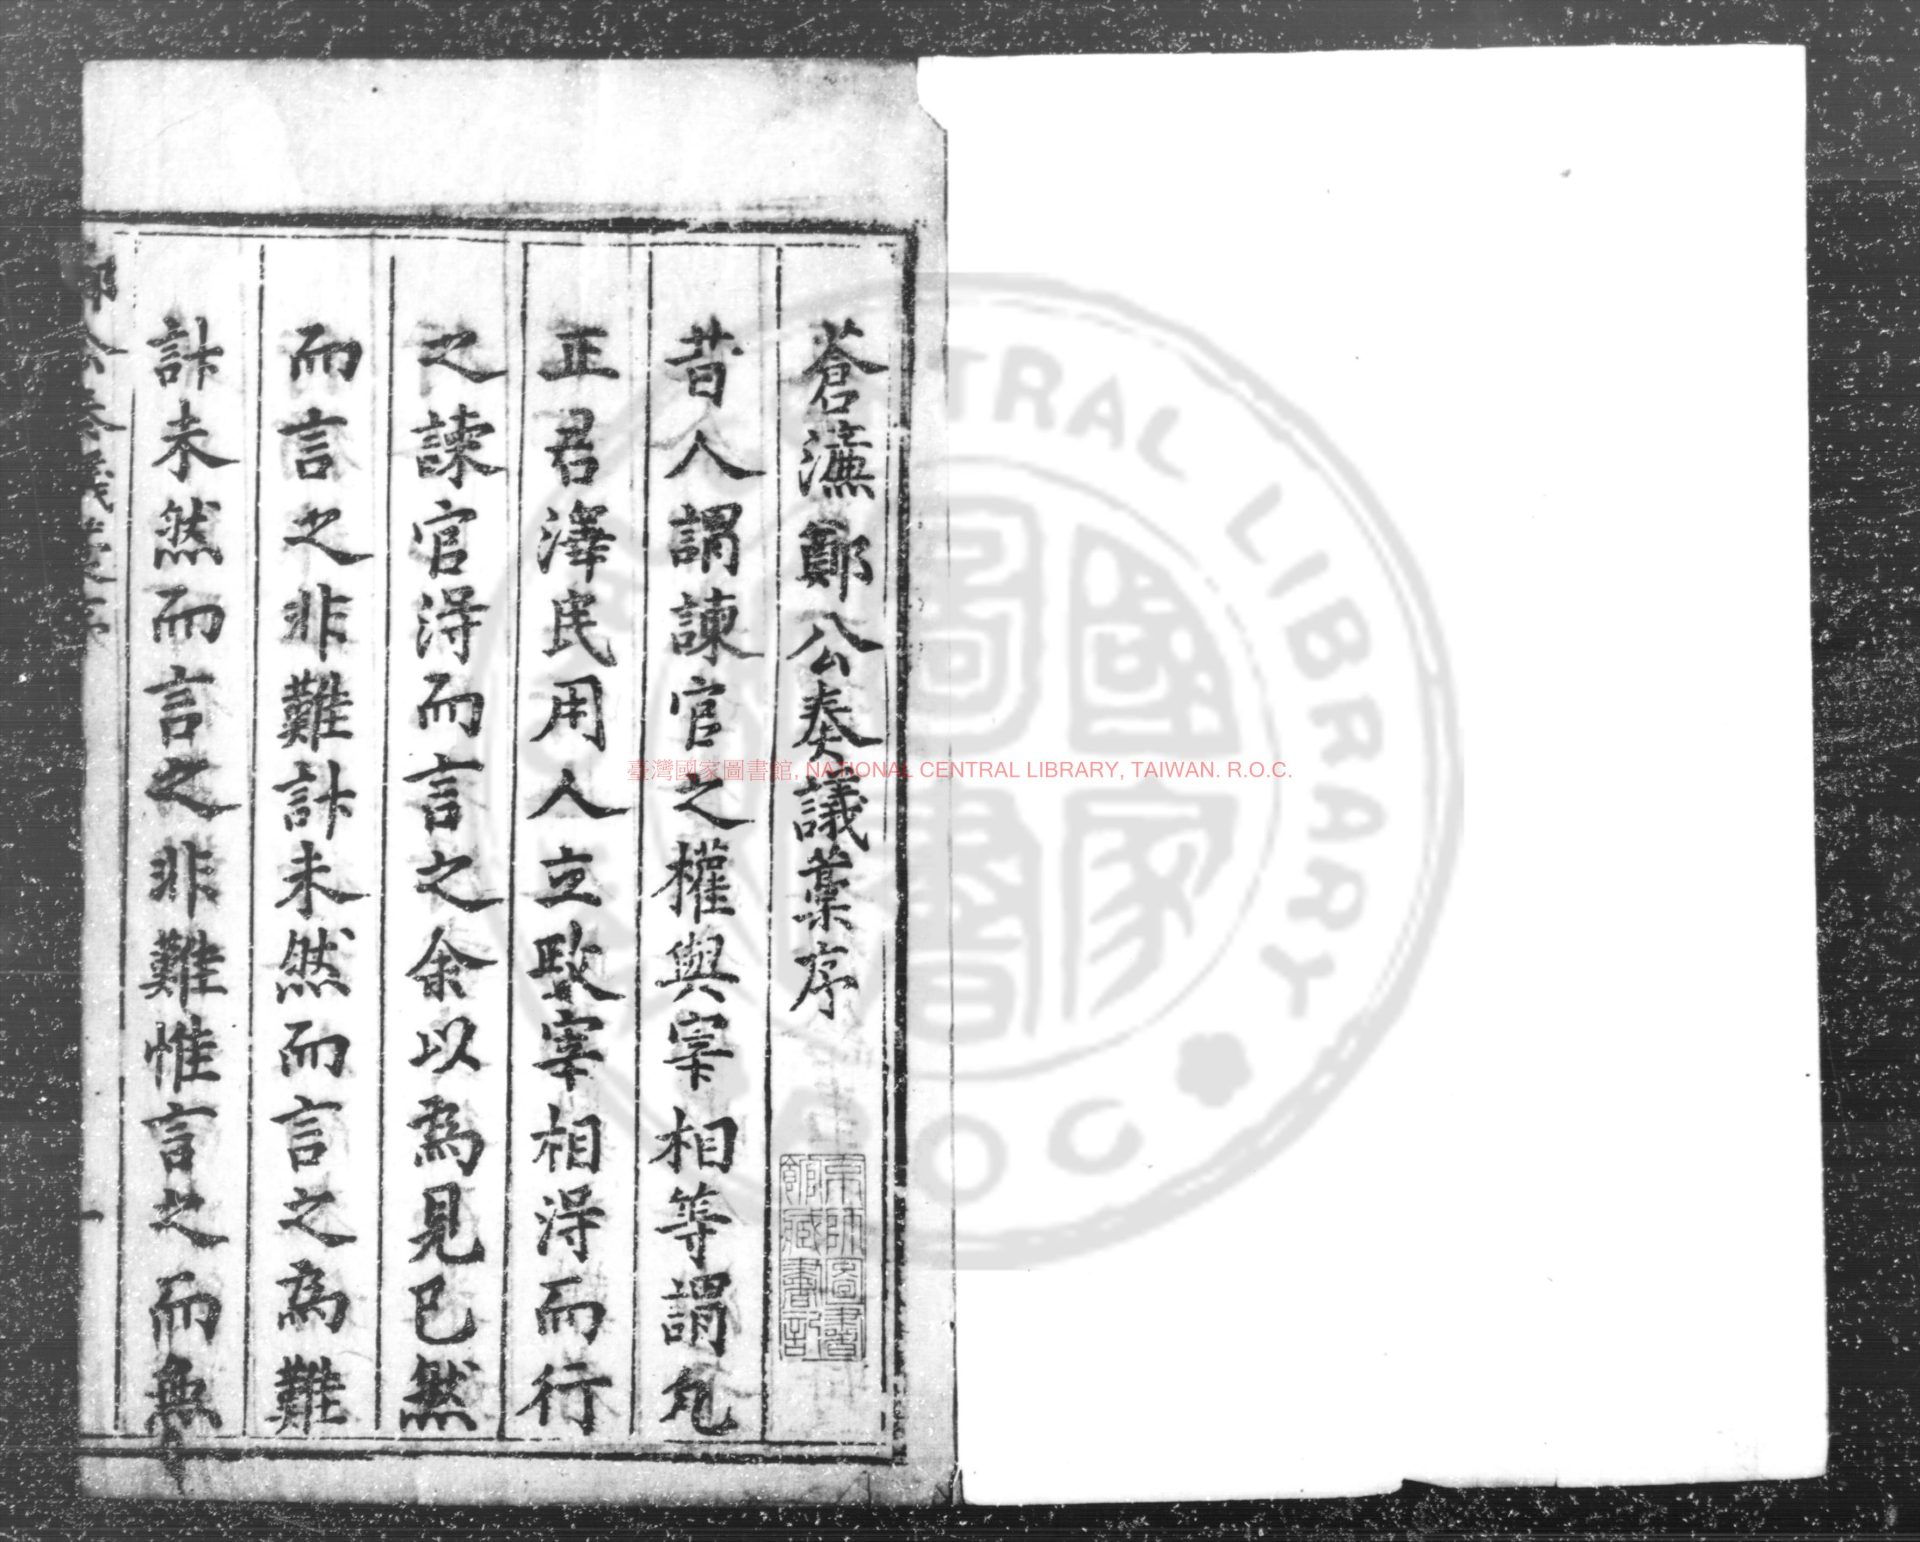 蒼濂鄭公奏議藁序
昔人謂諫官之權與宰相等謂凢
正君澤民用人立政宰相得而行
之諫官得而言之余以為見已然
而言之非難計未然而言之為難
計未然而言之非難惟言之而無
公奏議
一
京師圖書
館藏書記
臺灣國家圖書館, NATIONAL CENTRAL LIBRARY, TAIWAN. R.O.C.
CENTRAL LIBRARY
國家
圖書